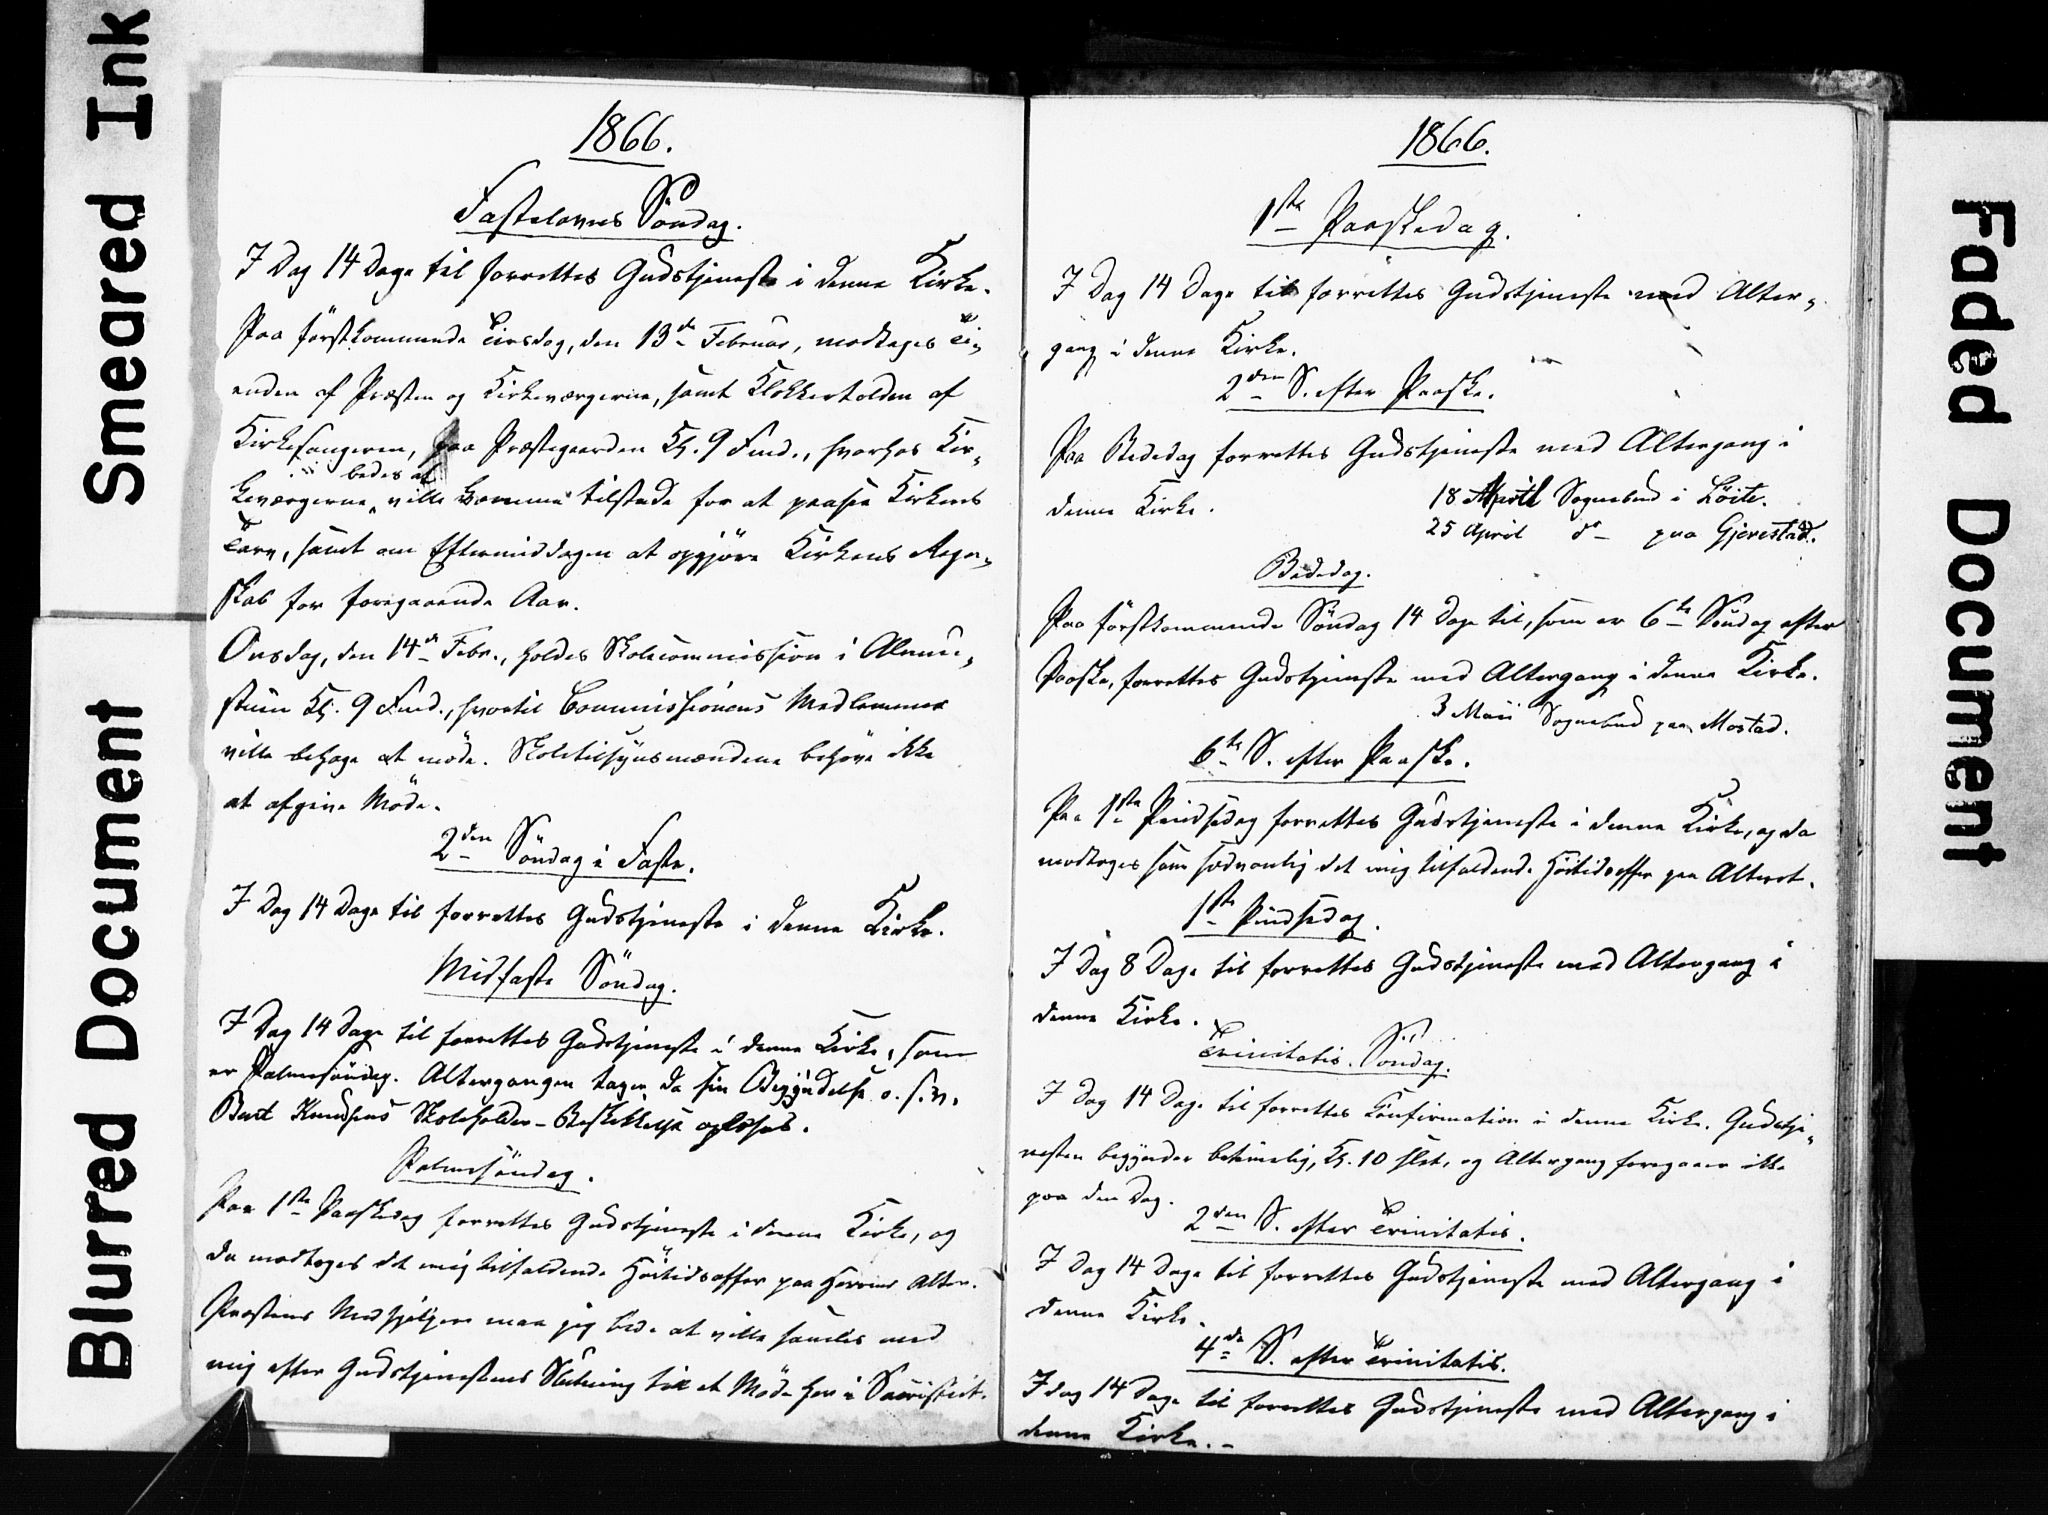 Smeared Ink
Blurred Document
Faded Document
1866.
Fastelavns Söndag.
I Dag 14 Dage til forrettes Gudstjeneste i denne Kirke.
Paa förstkommende Tirsdag, den 13de Februar, modtages Ti-
enden af Præsten og Kirkeværgerne, samt Klokkertolden af
Kirkesangeren, paa Præstegaarden Kl. 9 Fmd., hvorhos Kir-
bedes at
keværgerne ville komme tilstede for at paasee Kirkens
Tarv, samt om Eftermiddagen at opgjöre Kirkens Regn-
skab for foregaaende Aar.
Onsdag, den 14de Febr., holdes Skolecommission i Almue-
stuen Kl. 9 Fmd., hvortil Commissionens Medlemmer
ville behage at möde. Skoletilsynsmændene behöve ikke
at afgive Möde.
2den Söndag i Faste.
I Dag 14 Dage til forrettes Gudstjeneste i denne Kirke.
Midfaste Söndag.
I Dag 14 Dage til forrettes Gudstjeneste i denne Kirke, som
er Palmesöndag. Altergangen tager da sin Begyndelse o. s. v.
Bent Knudsens Skoleholder-Beskikkelse oplæses.
Palmesöndag.
Paa 1ste Paaskedag forrettes Gudstjeneste i denne Kirke, og
da modtages det mig tilfaldende Höitidsoffer paa Herrens Alter.
Præstens Medhjælpere maa jeg bede at ville samles med
mig efter Gudstjenestens Slutning til et Möde her i Sacristiet.
1866.
1ste Paaskedag.
I Dag 14 Dage til forrettes Gudstjeneste med Alter-
gang i denne Kirke.
2den S. efter Paaske.
Paa Bededag forrettes Gudstjeneste med Altergang i
denne Kirke.
18 April Sognebud i Löite.
25 April do paa Gjerestad.
Bededag.
Paa förstkommende Söndag 14 Dage til, som er 6te Söndag efter
Paaske, forrettes Gudstjeneste med Altergang i denne Kirke.
3 Maii Sognebud paa Mostad.
6te S. efter Paaske.
Paa 1ste Pindsedag forrettes Gudstjeneste i denne Kirke, og da
modtages som sædvanlig det mig tilfaldende Höitidsoffer paa Alteret.
1ste Pindsedag.
I Dag 8 Dage til forrettes Gudstjeneste med Altergang i
denne Kirke.
Trinitatis Söndag.
I Dag 14 Dage til forrettes Confirmation i denne Kirke. Gudstje-
nesten begynder betimelig, Kl. 10 slet, og Altergang foregaaer ikke
paa den Dag.
2den S. efter Trinitatis.
I Dag 14 Dage til forrettes Gudstjeneste med Altergang i
denne Kirke.
4de S. efter Trinitatis.
I dag 14 Dage til forrettes Gudstjeneste med Altergang i
denne Kirke. -